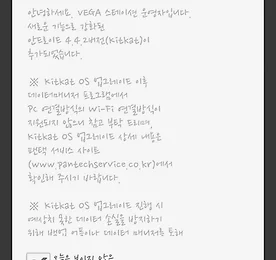 안녕하세요. VEGA 스테이션 운영자입니다.
새로운 기능으로 강화된
안드로이드 4.4.2버전(Kitkat)이
추가되었습니다.
※ Kitkat OS 업그레이드 이후
데이터매니저 프로그램에서
PC 연결방식의 Wi-Fi 연결방식이
지원되지 않으니 참고 부탁 드리며,
Kitkat OS 업그레이드 상세 내용은
팬택 서비스 사이트
(www.pantechservice.co.kr)에서
확인해 주시기 바랍니다.
※ Kitkat OS 업그레이드 진행 시
예상치 못한 데이터 손실을 방지하기
위해 백업 어플이나 데이터 매니저를 통해
오늘은 보이지 않음